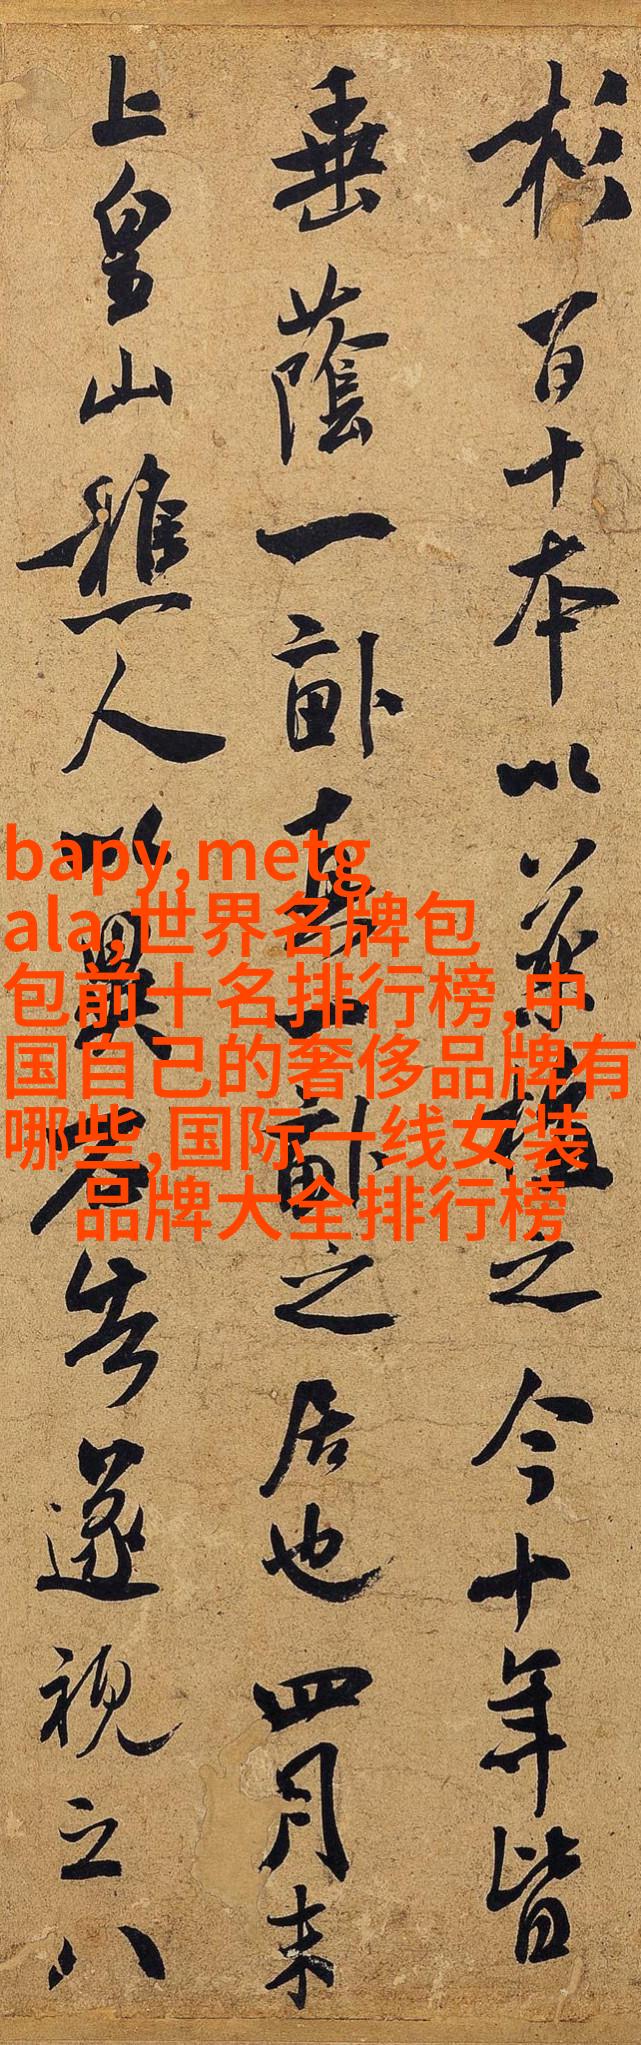 杉百十本以植之今十年皆
垂蔭一畝真一畝之居也四月末
上皇山樵人以異石告遂視之八
bapy,metg
ala,世界名牌包
包前十名排行榜,中
国自己的奢侈品牌有
哪些,国际一线女装
品牌大全排行榜